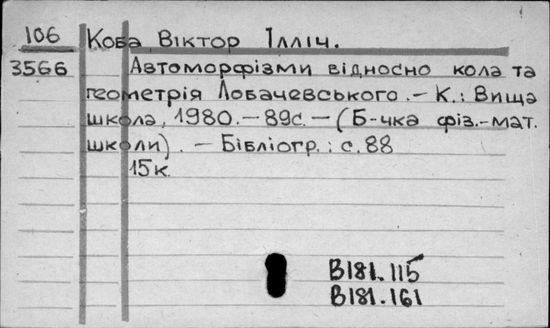 106
Коба Віктор Ілліч.
3566
Автоморфізми відносно кола та
геометрія Лобачевського. – К.: Вища
школа, 1980. – 89с. – (Б-чка фіз.-мат.
школи). – Бібліогр.: с. 88
15к.
В181.115
В181.161